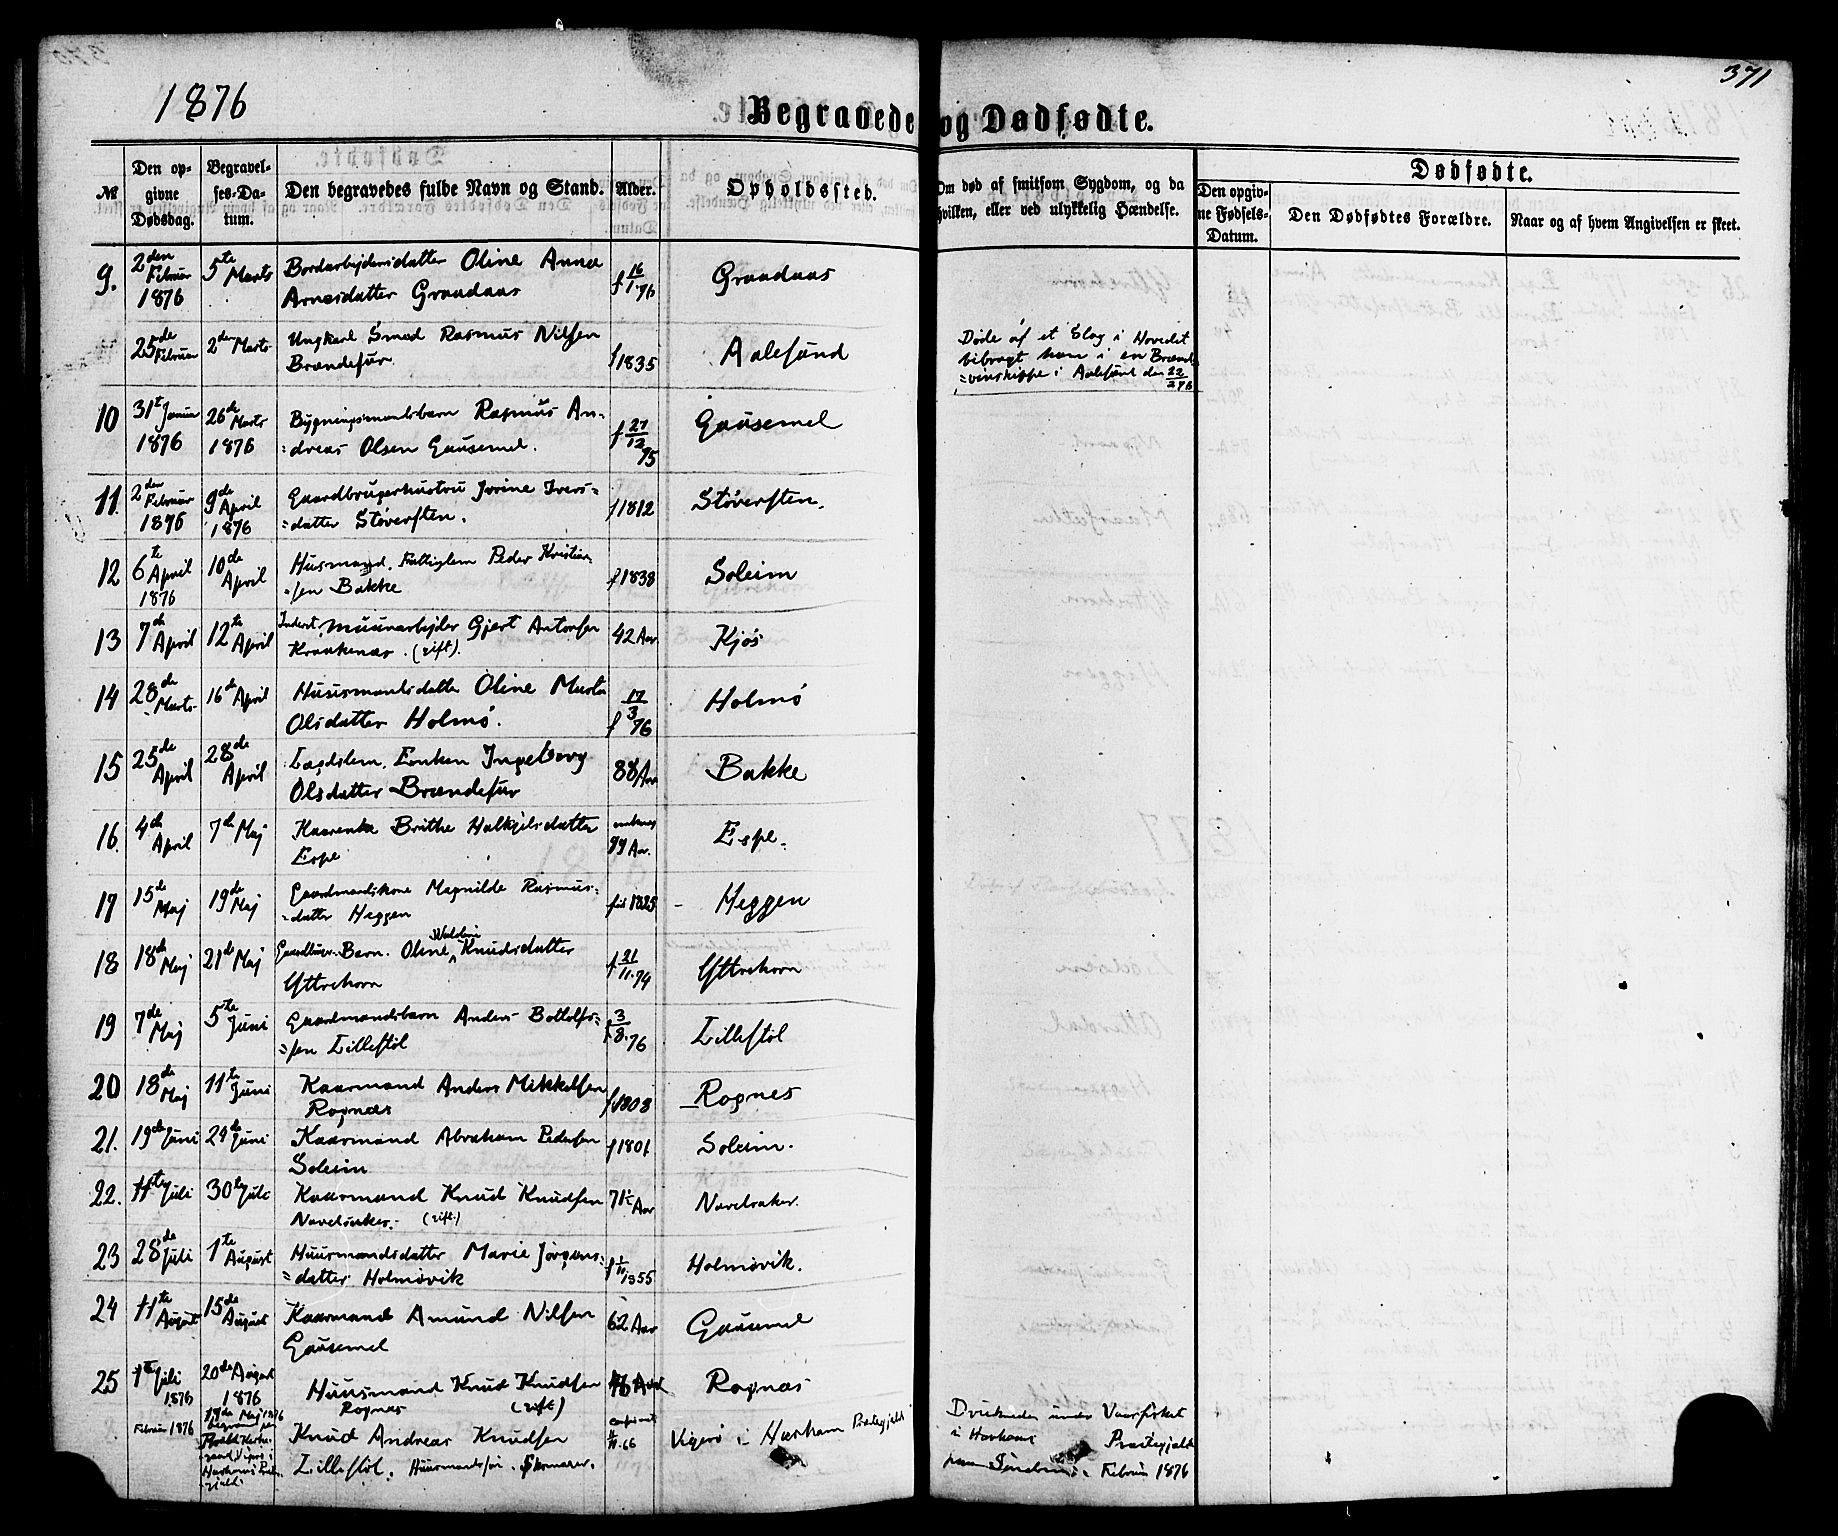 371
1876
Begravede og Dødfødte.
№
Den op-
givne
Dødsdag.
Begravel-
ses-Da-
tum.
Den begravedes fulde Navn og Stand.
Alder.
Opholdssted.
Om død af smitsom Sygdom, og da
hvilken, eller ved ulykkelig Hændelse.
Dødfødte.
Den opgiv-
ne Fødsels-
Datum.
Den Dødfødtes Forældre.
Naar og af hvem Angivelsen er skeet.
9. 2den Februar 1876 5te Marts Bordarbeidersdatter Oline Anna
Arnesdatter Graadaas f 16/1.76 Graadaas
25de Februar 2den Marts Ungkarl Smed Rasmus Nilsen
Brændefur f 1835 Aalesund
Døde af et Slag i Hovedet
bibragt ham i en Brænd-
=vinskippe i Aalesund den 22/2 76
10 31te Januar 1876 26de Marts 1876 Bygningsmandsbarn Rasmus An-
=dreas Olsen Gausemel. f 27/12 75 Gausemel
11. 2den Februar 1876 9de April 1876 Gaardbrugerhustru Jorine Ivers-
=datter Støversten. f 1812 Støversten.
12 6te April 1876 10de April Husmand, Fattiglem Peder Kristian-
=sen Bakke f 1838 Soleim
13 7de April 12te April Inderst Muurarbejder Gjert Antonsen
Kraakenæs. (gift). 42 Aar Kjøs
14 28de Marts 16de April Huusmandsdatter Oline Marta
Olsdatter Holmø. f 17/3 76 Holmø
15 25de April 28de April Lægdslem. Enken Ingeborg
Olsdatter Brændefur 88 Aar Bakke
16. 4de April 7de Maj Kaarenke Brithe Halkjelsdatter
Espe Aar. Espe.
17 15de Maj 19de Maj Gaardmandskone Magnilde Rasmus-
=datter Heggen 1825 Heggen
18 18de Maj 21de Maj Barn. Oline Knudsdatter
Yttrehorn f 21/11.74 Yttrehorn
19 7de Maj 5te Juni Gaardmandsbarn Anders Bottolfs-
=sen Lillestøl f 3/8.76 Lillestøl
20 18de Maj 11te Juni Kaarmand Anders Mikkelsen
Rognæs f 1808 Rognes
21. 19de Juni 24de Juni Kaarmand Abraham Pedersen
Soleim f 1801 Soleim.
22. 11te Juli 30te Juli Kaarmand Knud Knudsen
Navelsaker. (gift.) 71½ Aar Navelsaker.
23 28de Juli 1te August Huusmandsdatter Marie Jørgens-
=datter Holmøvik f 1/11 1855 Holmøvik.
24 11te August 15de August Kaarmand Amund Nilsen
Gausemel 62 Aar Gausemel
25 1te Juli 1876 20de August 1876 Huusmand Knud Knudsen
Rognæs (gift) Rognæs
Februar 1876 17de Maj 1876 Knud Andreas Knudsen
Lillestøl. Huusmandssøn. Vigerø i Harham Præstegjeld
Druknede under Vaarfisket
i Harhams Præstegjeld
paa Søndmøre. Februar 1876